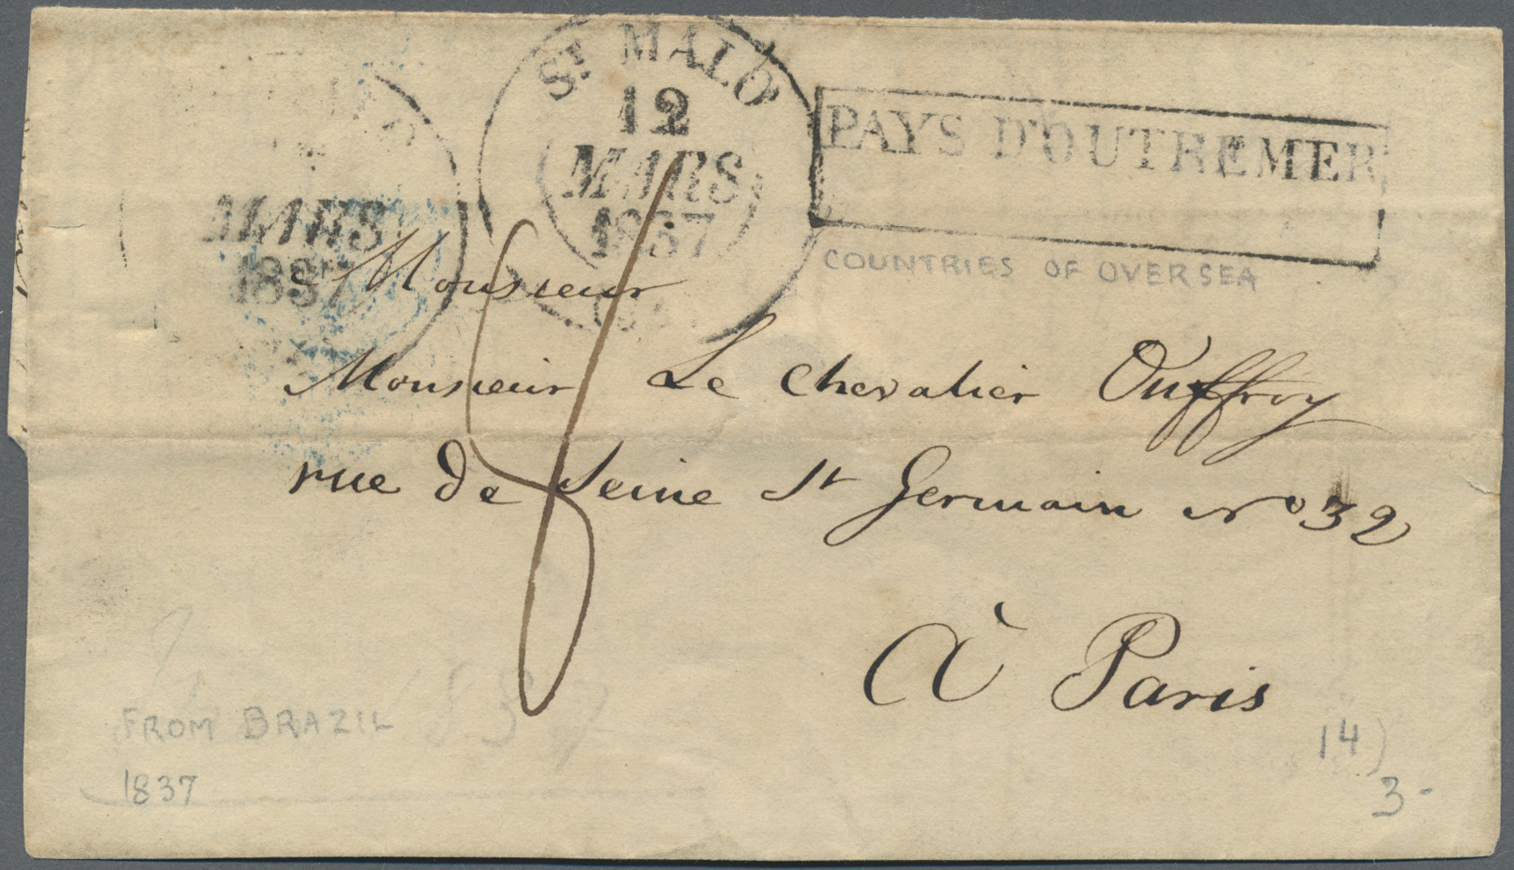 St MALO
12
MARS
1837
PAYS D'OUTREMER
MARS
1837
COUNTRIES OF OVERSEA
Monsieur
Monsieur Le Chevalier Ouffroy
rue de Seine St Germain No 32
à Paris
FROM BRAZIL
1837
14)
3-